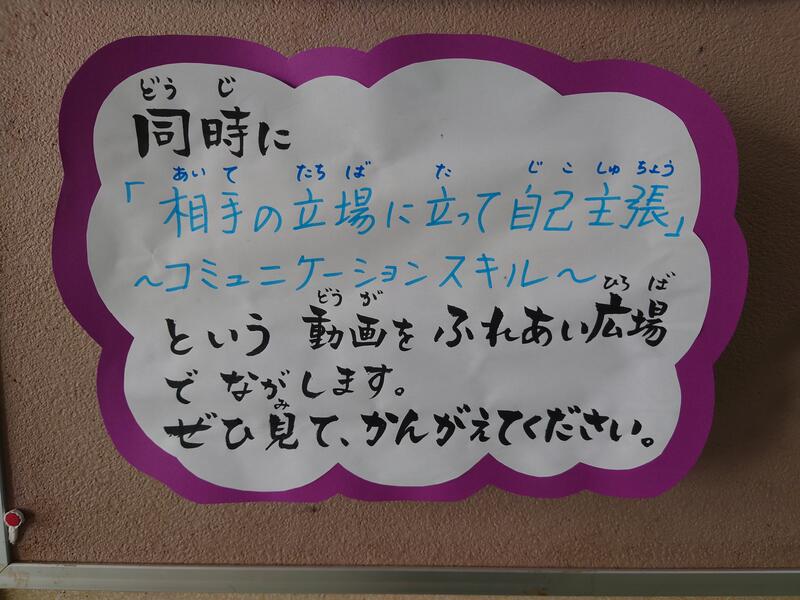 どうじ
同時に
あいて たちば た じこしゅちょう
「相手の立場に立って自己主張」
～コミュニケーションスキル～
どうが ひろば
という動画をふれあい広場
でながします。
み
ぜひ見て、かんがえてください。